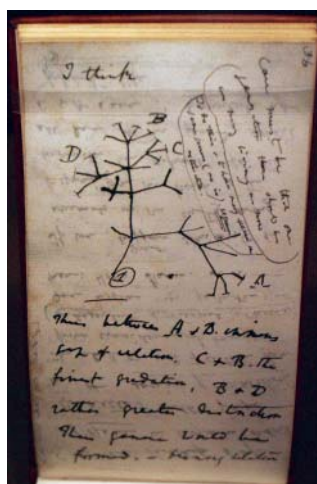 36
I think
B
D
C
A
1
Case must be that one
generation then should be
as many living as now
To do this & to have many species in
same genus (as is) requires
extinction
Thus between A & B. immens
gap of relation. C & B. the
finest gradation, B & D
rather greater distinction
Thus genera would be
formed. — bearing relation